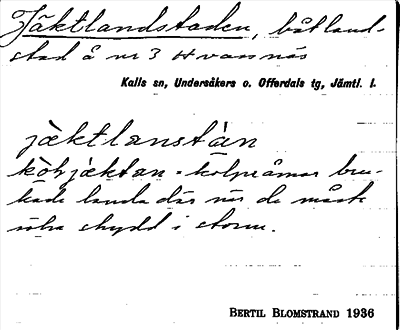 Jäktlandstaden, båtland-
stad å nr 3 Hvarsnäs
Kalls sn, Undersåkers o. Offerdals tg, Jämtl. l.
jæktlanstàn
jæktan = kolpråmar bru-
kade landa där när de måste
söka skydd i storm.
BERTIL BLOMSTRAND 1936